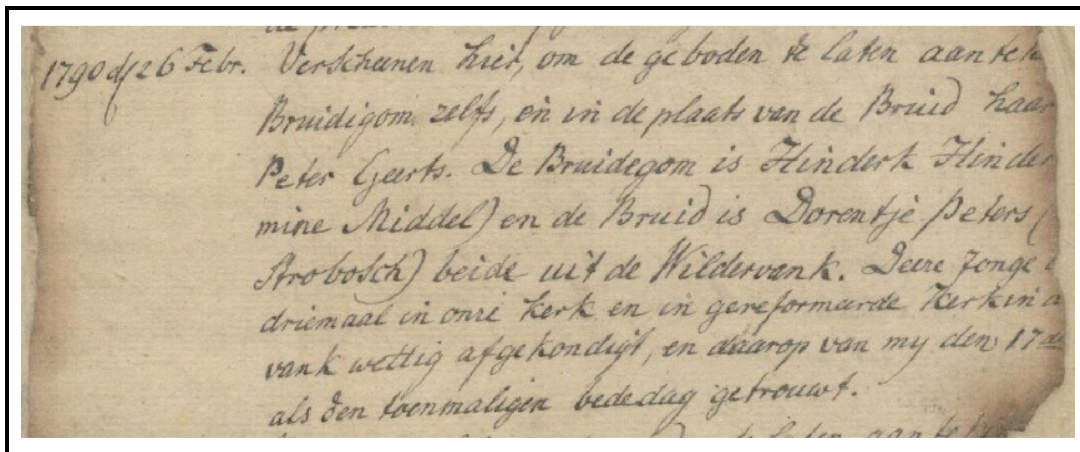 1790 d/26 Febr. Verscheenen hier, om de geboden te laten aantek
Bruidigom zelfs, en in de plaats van de Bruid haar
Peter Geerts. De Bruidegom is Hinderk Hinder
mine Middel) en de Bruid is Dorentje Peters (
Strobosch) beide uit de Wildervank. Deeze Jonge
driemaal in onze kerk en in gereformeerde kerk in
vank wettig afgekondigt, en daarop van my den 17de
als den toenmaligen bededag getrouwt.
laten aan te